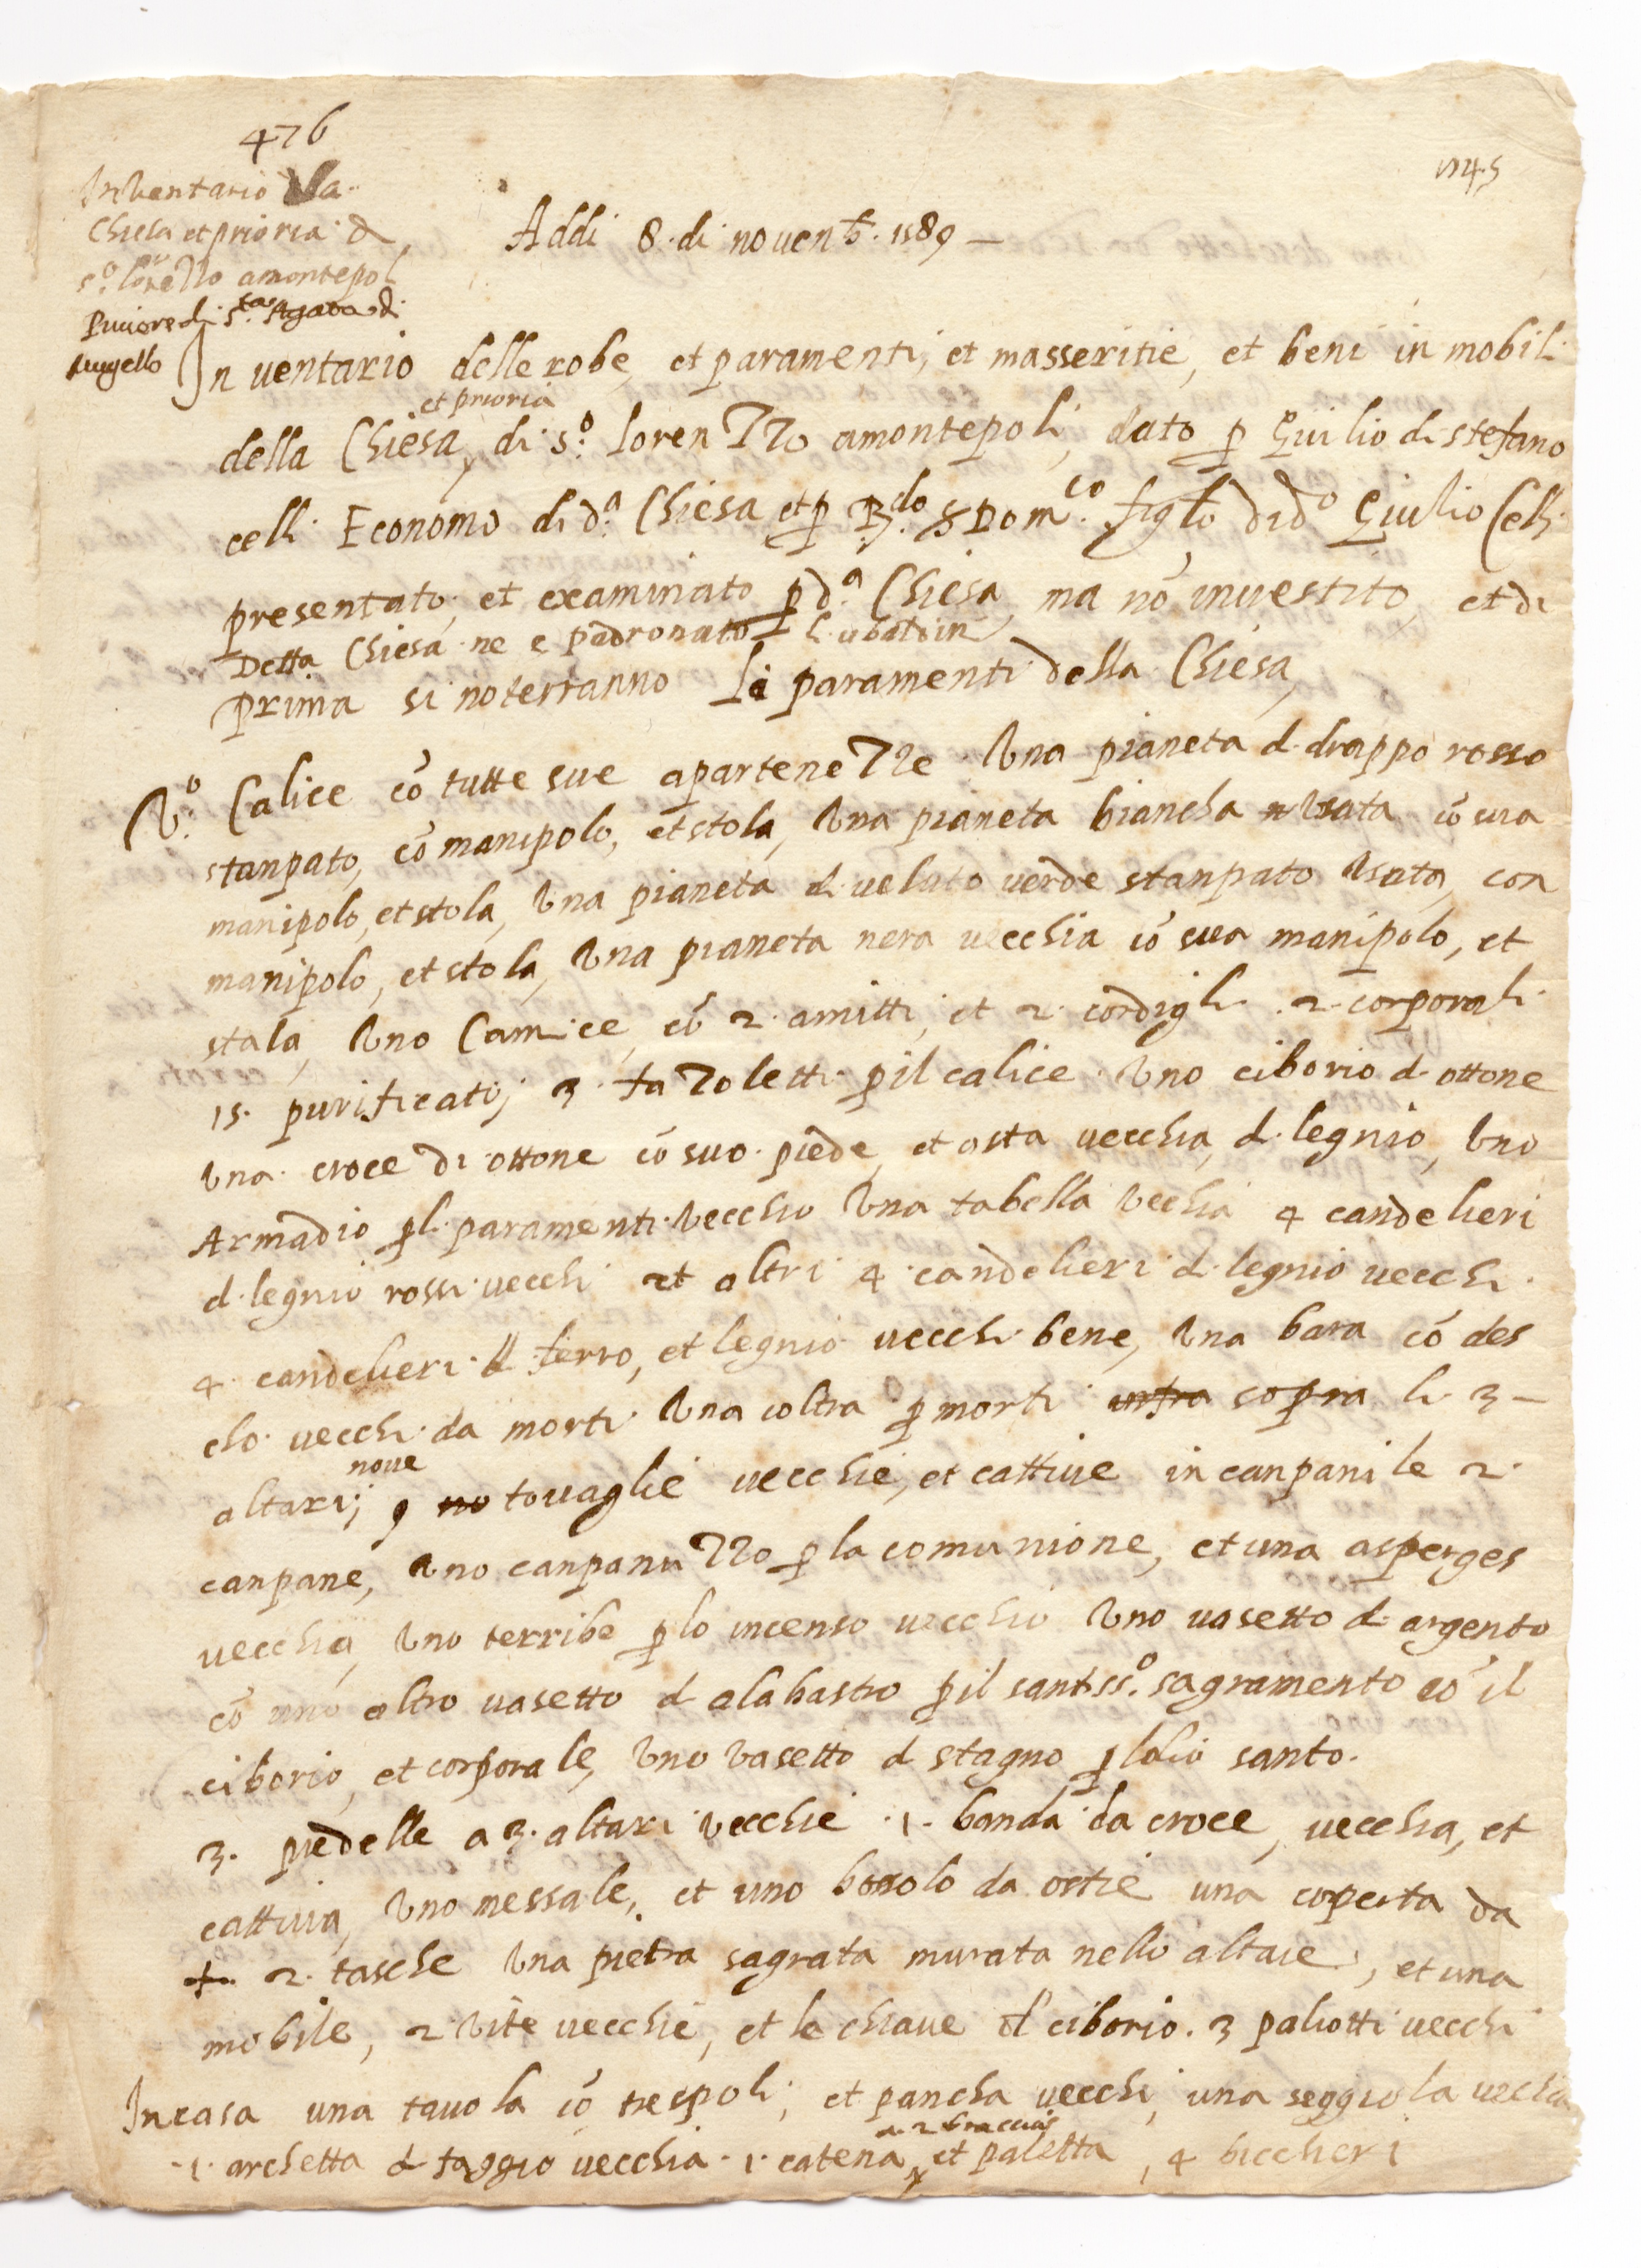 476
1145
Inventario
Chiesa et prioria d
s.o lorenzo amontepoli
Piviere di s.ta Agata d
Muggello
Addi 8. di novenb. 1589 —
Inventario delle robe, et paramenti, et masseritie, et beni in mobili
et prioria
della Chiesa, di s.o lorenzzo amontepoli, dato p Giulio di stefano
celli Economo di d.a Chiesa et p B.do &Dom.co figlo di d.o Giulio Celli
presentato, et examinato p d.a Chiesa, ma nō investito, et di
Detta Chiesa ne e padronato li ubaldini
prima si noterranno li paramenti della Chiesa,
V.o Calice cō tutte sue apartenezze. Una pianeta d. drappo rosso
stanpato, cō manipolo, et stola, Una pianeta biancha usata cō sua
manipolo, et stola, Una pianeta di velluto verde stanpato Usata, con
manipolo, et stola, Una pianeta nera vecchia cō sua manipolo, et
stala, Uno Camice, cō 2. amitti, et 2. cordigli. 2. corporali.
15. purificatij 3. fazoletti p il calice. Uno ciborio d. ottone
Una croce di ottone cō suo piede, et asta vecchia, d. legnio, Uno
Armadio p li paramenti vecchio Una tabella vechia 4 candelieri
d. legnio rossi vecchi et altri 4 candelieri d. legnio vecchi.
4 candelieri d ferro, et legnio vecchi bene, Una bara cō des
cho vecchi da morti Una coltra p morti sopra li 3 —
nove
altari; 9 no tovaglie vecchie, et cattive in canpanile 2.
canpane, Uno canpanuzzo p la comunione, et una asperges
vecchia, Uno terribe p lo incenso vecchio Uno vasetto d argento
cō uno altro vasetto d alabastro p il santiss.o sagramento cō il
ciborio, et corporale, Uno vasetto d stagno p lolio santo.
3. predelle a 3. altari vecchie .1. banda da croce, vecchia, et
cattiva, Uno messale, et uno bossolo da ostie una coperta da
2. tasche Una pietra sagrata murata nello altare, et una
mobile, 2 Vite vecchie, et le chiave d ciborio. 3 paliotti vecchi
In casa una tavola cō trespoli, et pancha vecchi, una seggiola vecchia
a 2 braccia
.1. archetta d faggio vecchia .1. catena, et paletta, 4 bicchieri